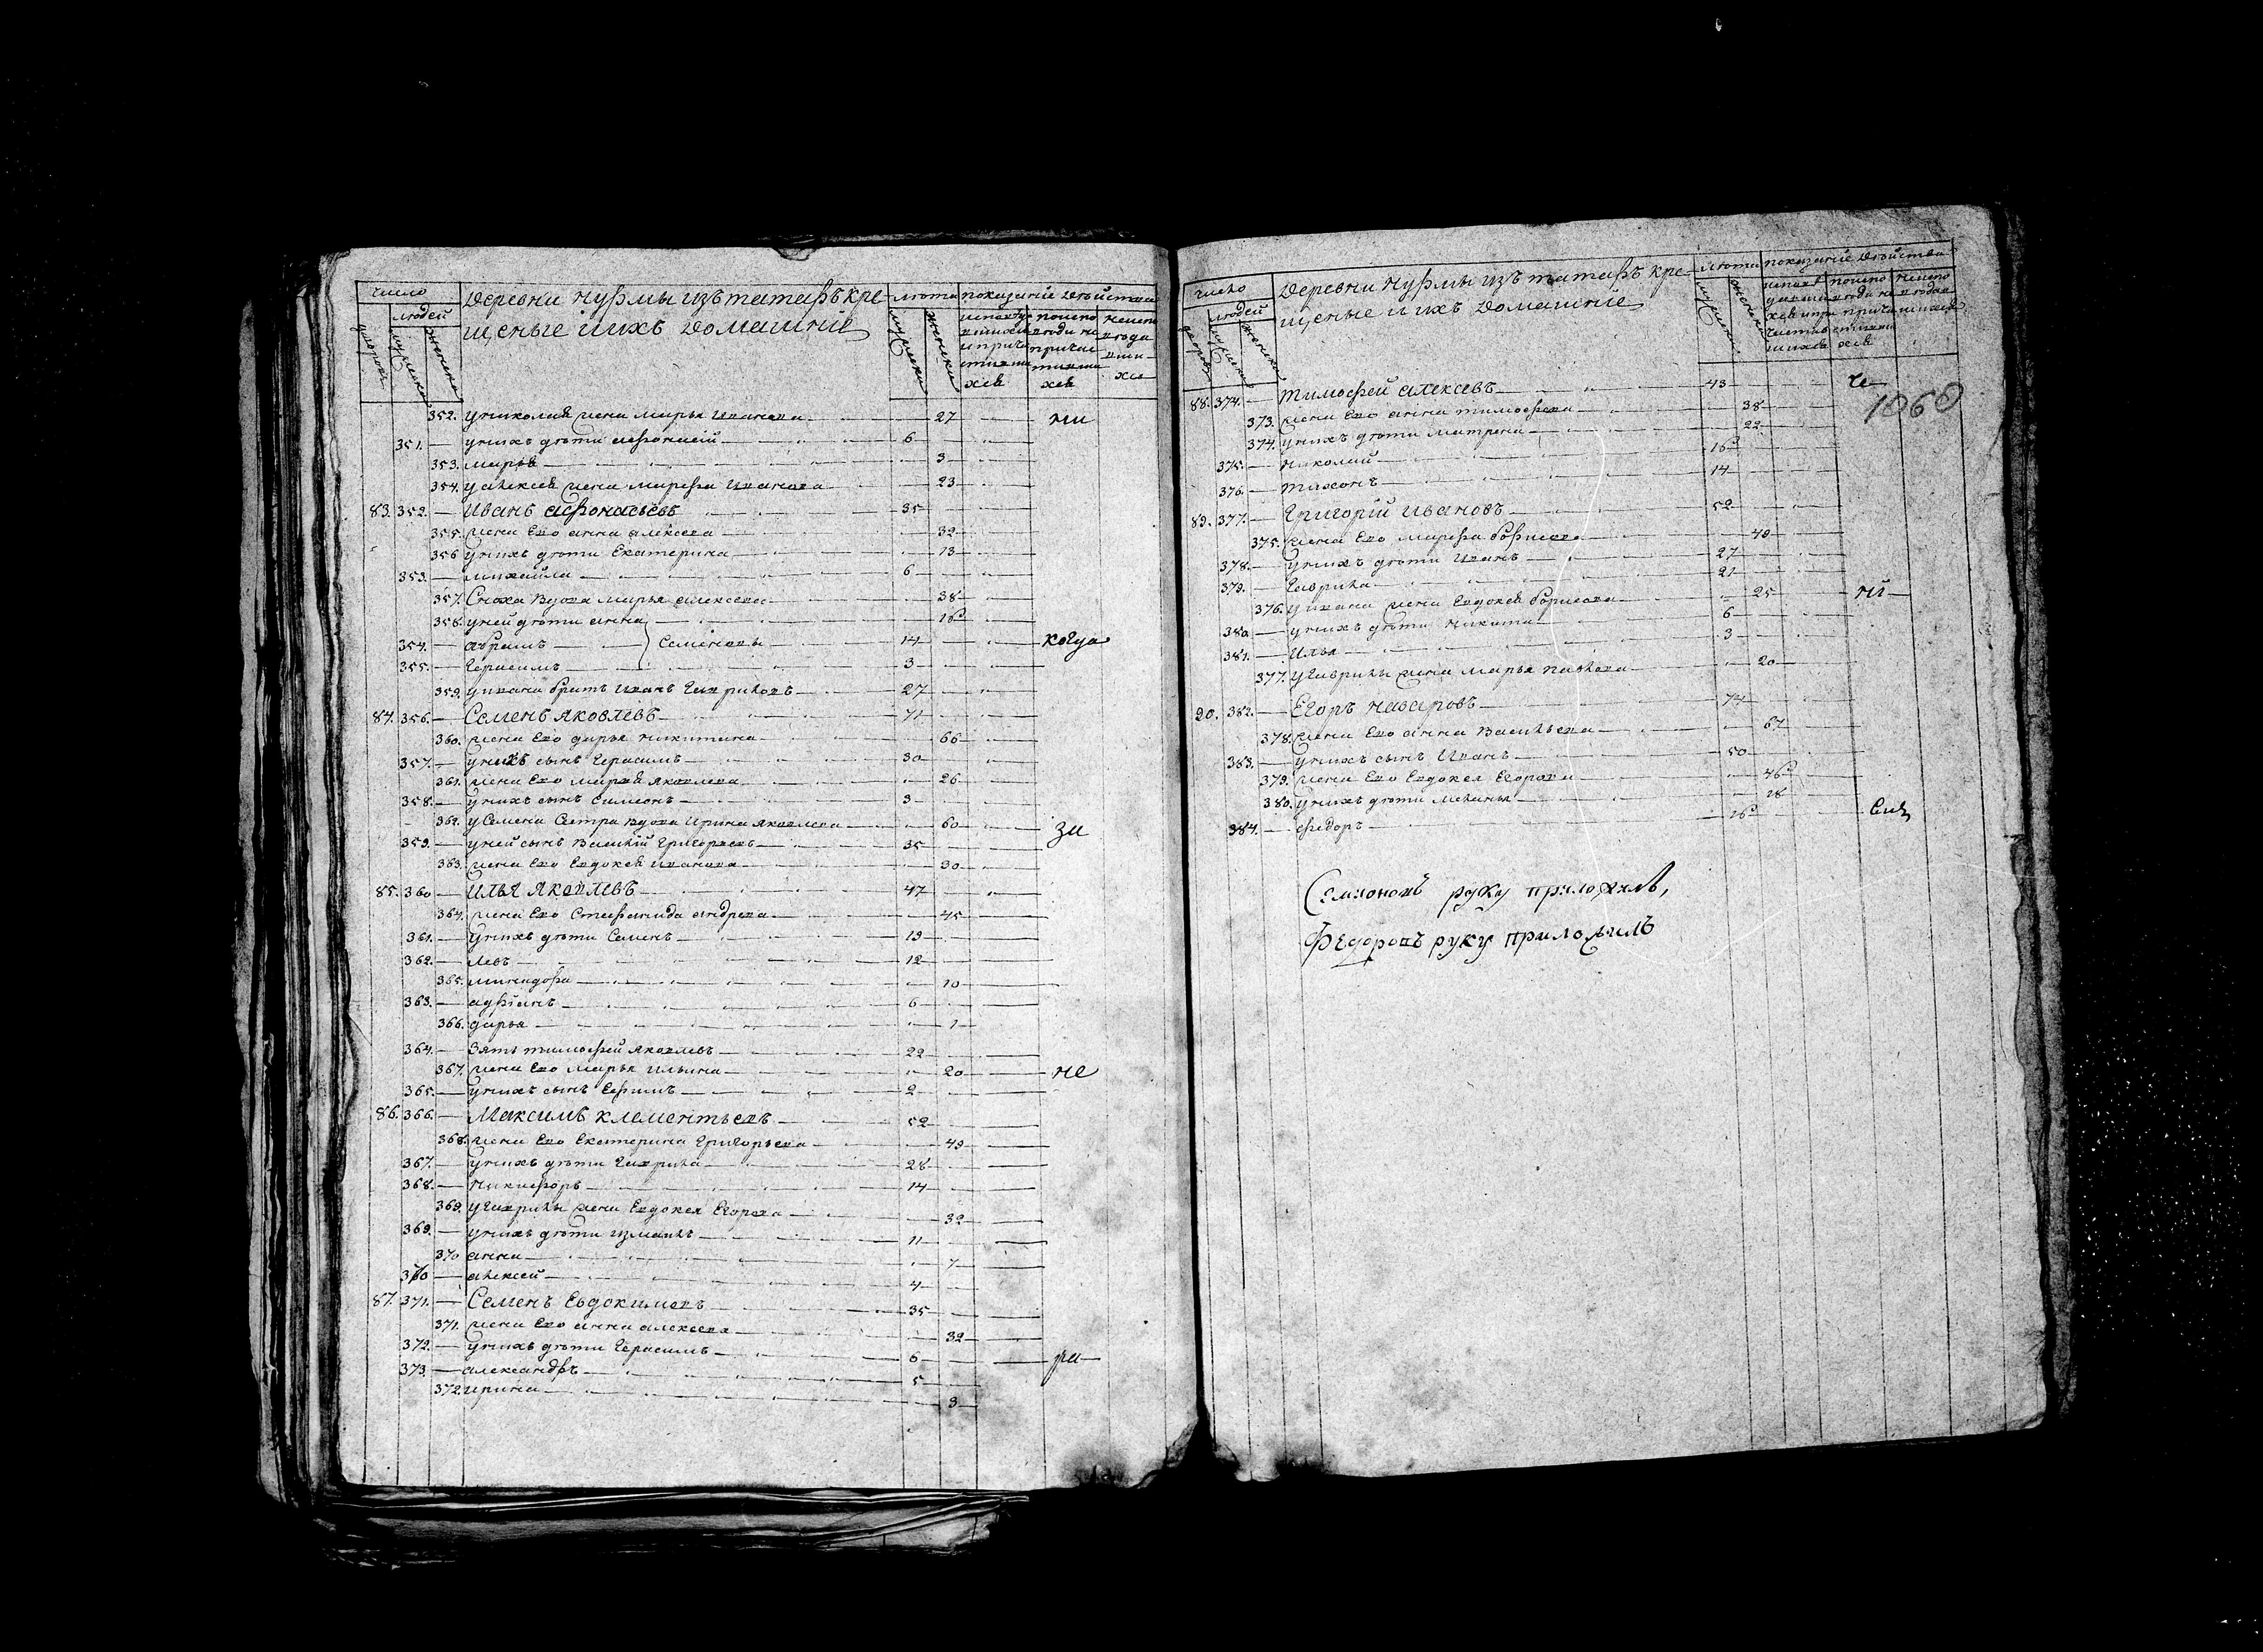 число
людей
дворовъ
мужеска
женска
Деревни Нурмы изъ татаръ кре
щеные и ихъ домашніе
лѣта
мужеска
женска
показаніе дѣйства
352. у николая жена марья иванова 27 ни
351. — у нихъ дѣти афонасій 6
353. марья 3
354. у алексея жена марфа иванова 23
83. 352. — Иванъ афонасьевъ 35
355. жена ево анна алексева 32
356 у нихъ дѣти Екатерина 13
353. — михайла 6
357. Сноха вдова марья алексева 38
358. у ней дѣти анна 16
354. — абрамъ Семеновы 14 когда
355. — Герасимъ 3
359. у ивана братъ иванъ Гавриловъ 27
84. 356. — Семенъ яковлевъ 71
360. жена ево дарья никитина 66
357. — у нихъ сынъ Герасимъ 30
361. жена ево марья яковлева 26
358. — у нихъ сынъ симеонъ 3
362. у Семена Сестра вдова ирина яковлева 60 за
359. — у ней сынъ василій Григорьевъ 35
363. жена ево Евдокея иванова 30
85. 360 — илья яковлевъ 47
364. жена ево Стефанида андреева 45
361. — у нихъ дѣти Семенъ 19
362. — левъ 12
365. минадора 10
363. — адріанъ 6
366. дарья 1
364. — зять тимофей яковлевъ 22
367. жена ево марья ильина 20 не
365. — у нихъ сынъ Ефимъ 2
86. 366. — Максимъ клементьевъ 52
368. жена ево Екатерина Григорьева 49
367. — у нихъ дѣти Гаврила 28
368. — никифоръ 14
369. у Гаврилы жена Евдокея Егорова 32
369. — у нихъ дѣти измаилъ 11
370 анна 7
370 — алексей 4
87. 371. — Семенъ Евдокимовъ 35
371. жена ево анна алексеева 32
372. — у нихъ дѣти Герасимъ 6 ра
373. — александръ 5
372. ирина 3
число
людей
дворовъ
мужеска
женска
Деревни Нурмы изъ татаръ кре
щеные и ихъ домашніе
лѣта
мужеска
женска
показаніе дѣйства
1060
88. 374. — тимофей алексевъ 43 че
373. жена ево анна тимофеева 38
374. у нихъ дѣти матрена 22
375. — николай 16
376. — тихонъ 14
89. 377. — Григорій ивановъ 52
375. жена ево марфа борисова 49
378. — у нихъ дѣти иванъ 27
379. — Гаврила 21
376. у ивана жена Евдокея борисова 25 ні
380. — у нихъ дѣти никита 6
381. — илья 3
377. у Гаврилы жена марья павлова 20
90. 382. — Егоръ назаровъ 74
378. жена ево анна васильева 67
383. — у нихъ сынъ иванъ 50
379. жена ево Евдокея Егорова 46
380. у нихъ дѣти меланья 18
384. — федоръ 16
Семионовъ руку приложилъ,
Федоровъ руку приложилъ